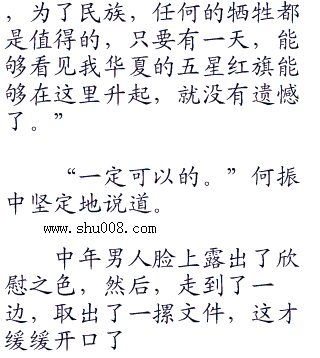 ，为了民族，任何的牺牲都
是值得的，只要有一天，能
够看见我华夏的五星红旗能
够在这里升起，就没有遗憾
了。”
“一定可以的。”何振
中坚定地说道。
www.shu008.com
中年男人脸上露出了欣
慰之色，然后，走到了一
边，取出了一摞文件，这才
缓缓开口了